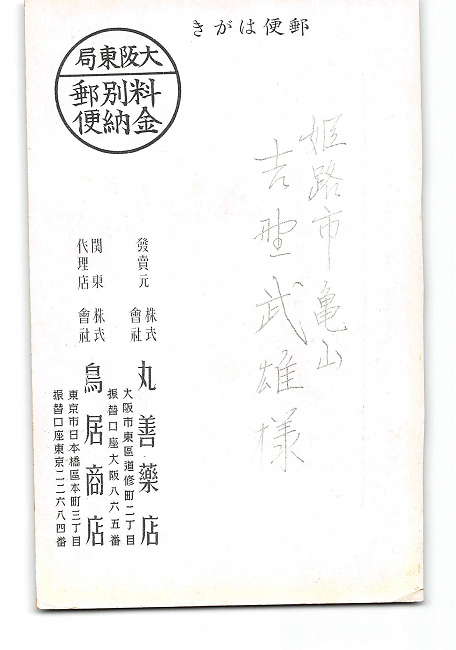 郵便はがき
大阪東局
料金別納郵便
姫路市亀山
吉野武雄様
發賣元 株式會社 丸善藥店
大阪市東區道修町二丁目
振替口座大阪八六五番
関東代理店 株式會社 鳥居商店
東京市日本橋區本町三丁目
振替口座東京二二六八四番